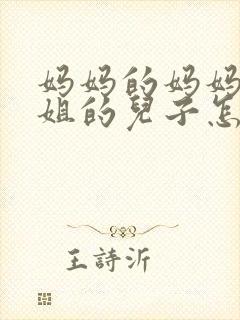 妈妈的妈妈
姐的兒子怎
王詩沂